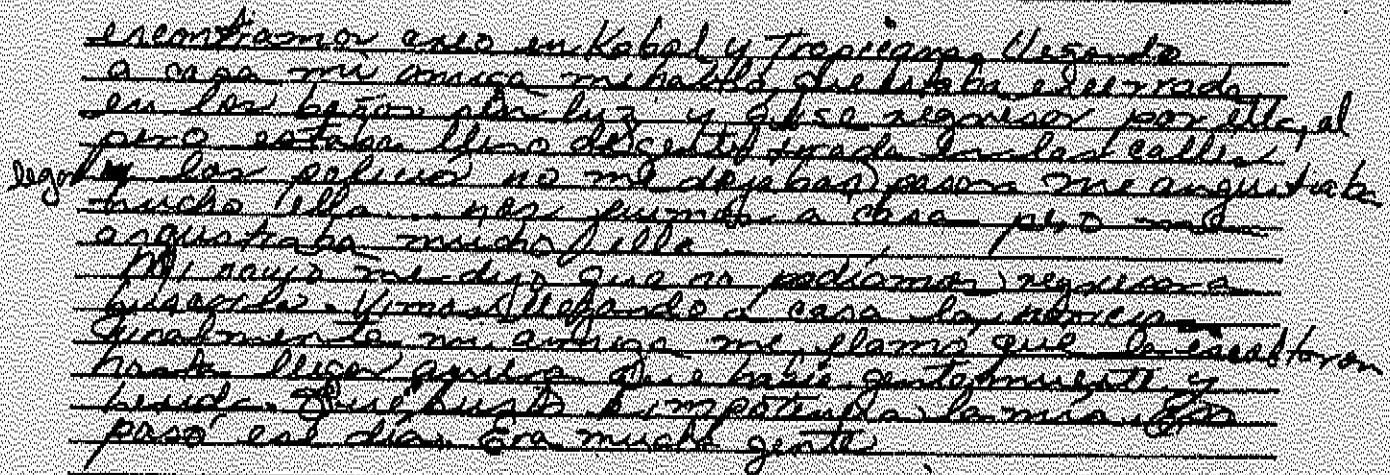 encontramos axeo en Kobal y Tropicana, llegando
a casa mi amiga me hablo que estaba encerrada
en los baños sin luz y quise regresar por ella, al
pero estaba lleno de gente tirada en las calles
llegar los policias no me dejaban pasar me angustiaba
mucho ella... nos fuimos a casa pero me
angustiaba mucho ella.
Mi novio me dijo que no podíamos regresar a
buscarla. Vimos llegando a casa las noticias
finalmente mi amiga me llamo que la escoltaron
hasta llegar afuera que habia gente muerta y
herida. Que susto e impotencia la mia
paso ese día. Era mucha gente